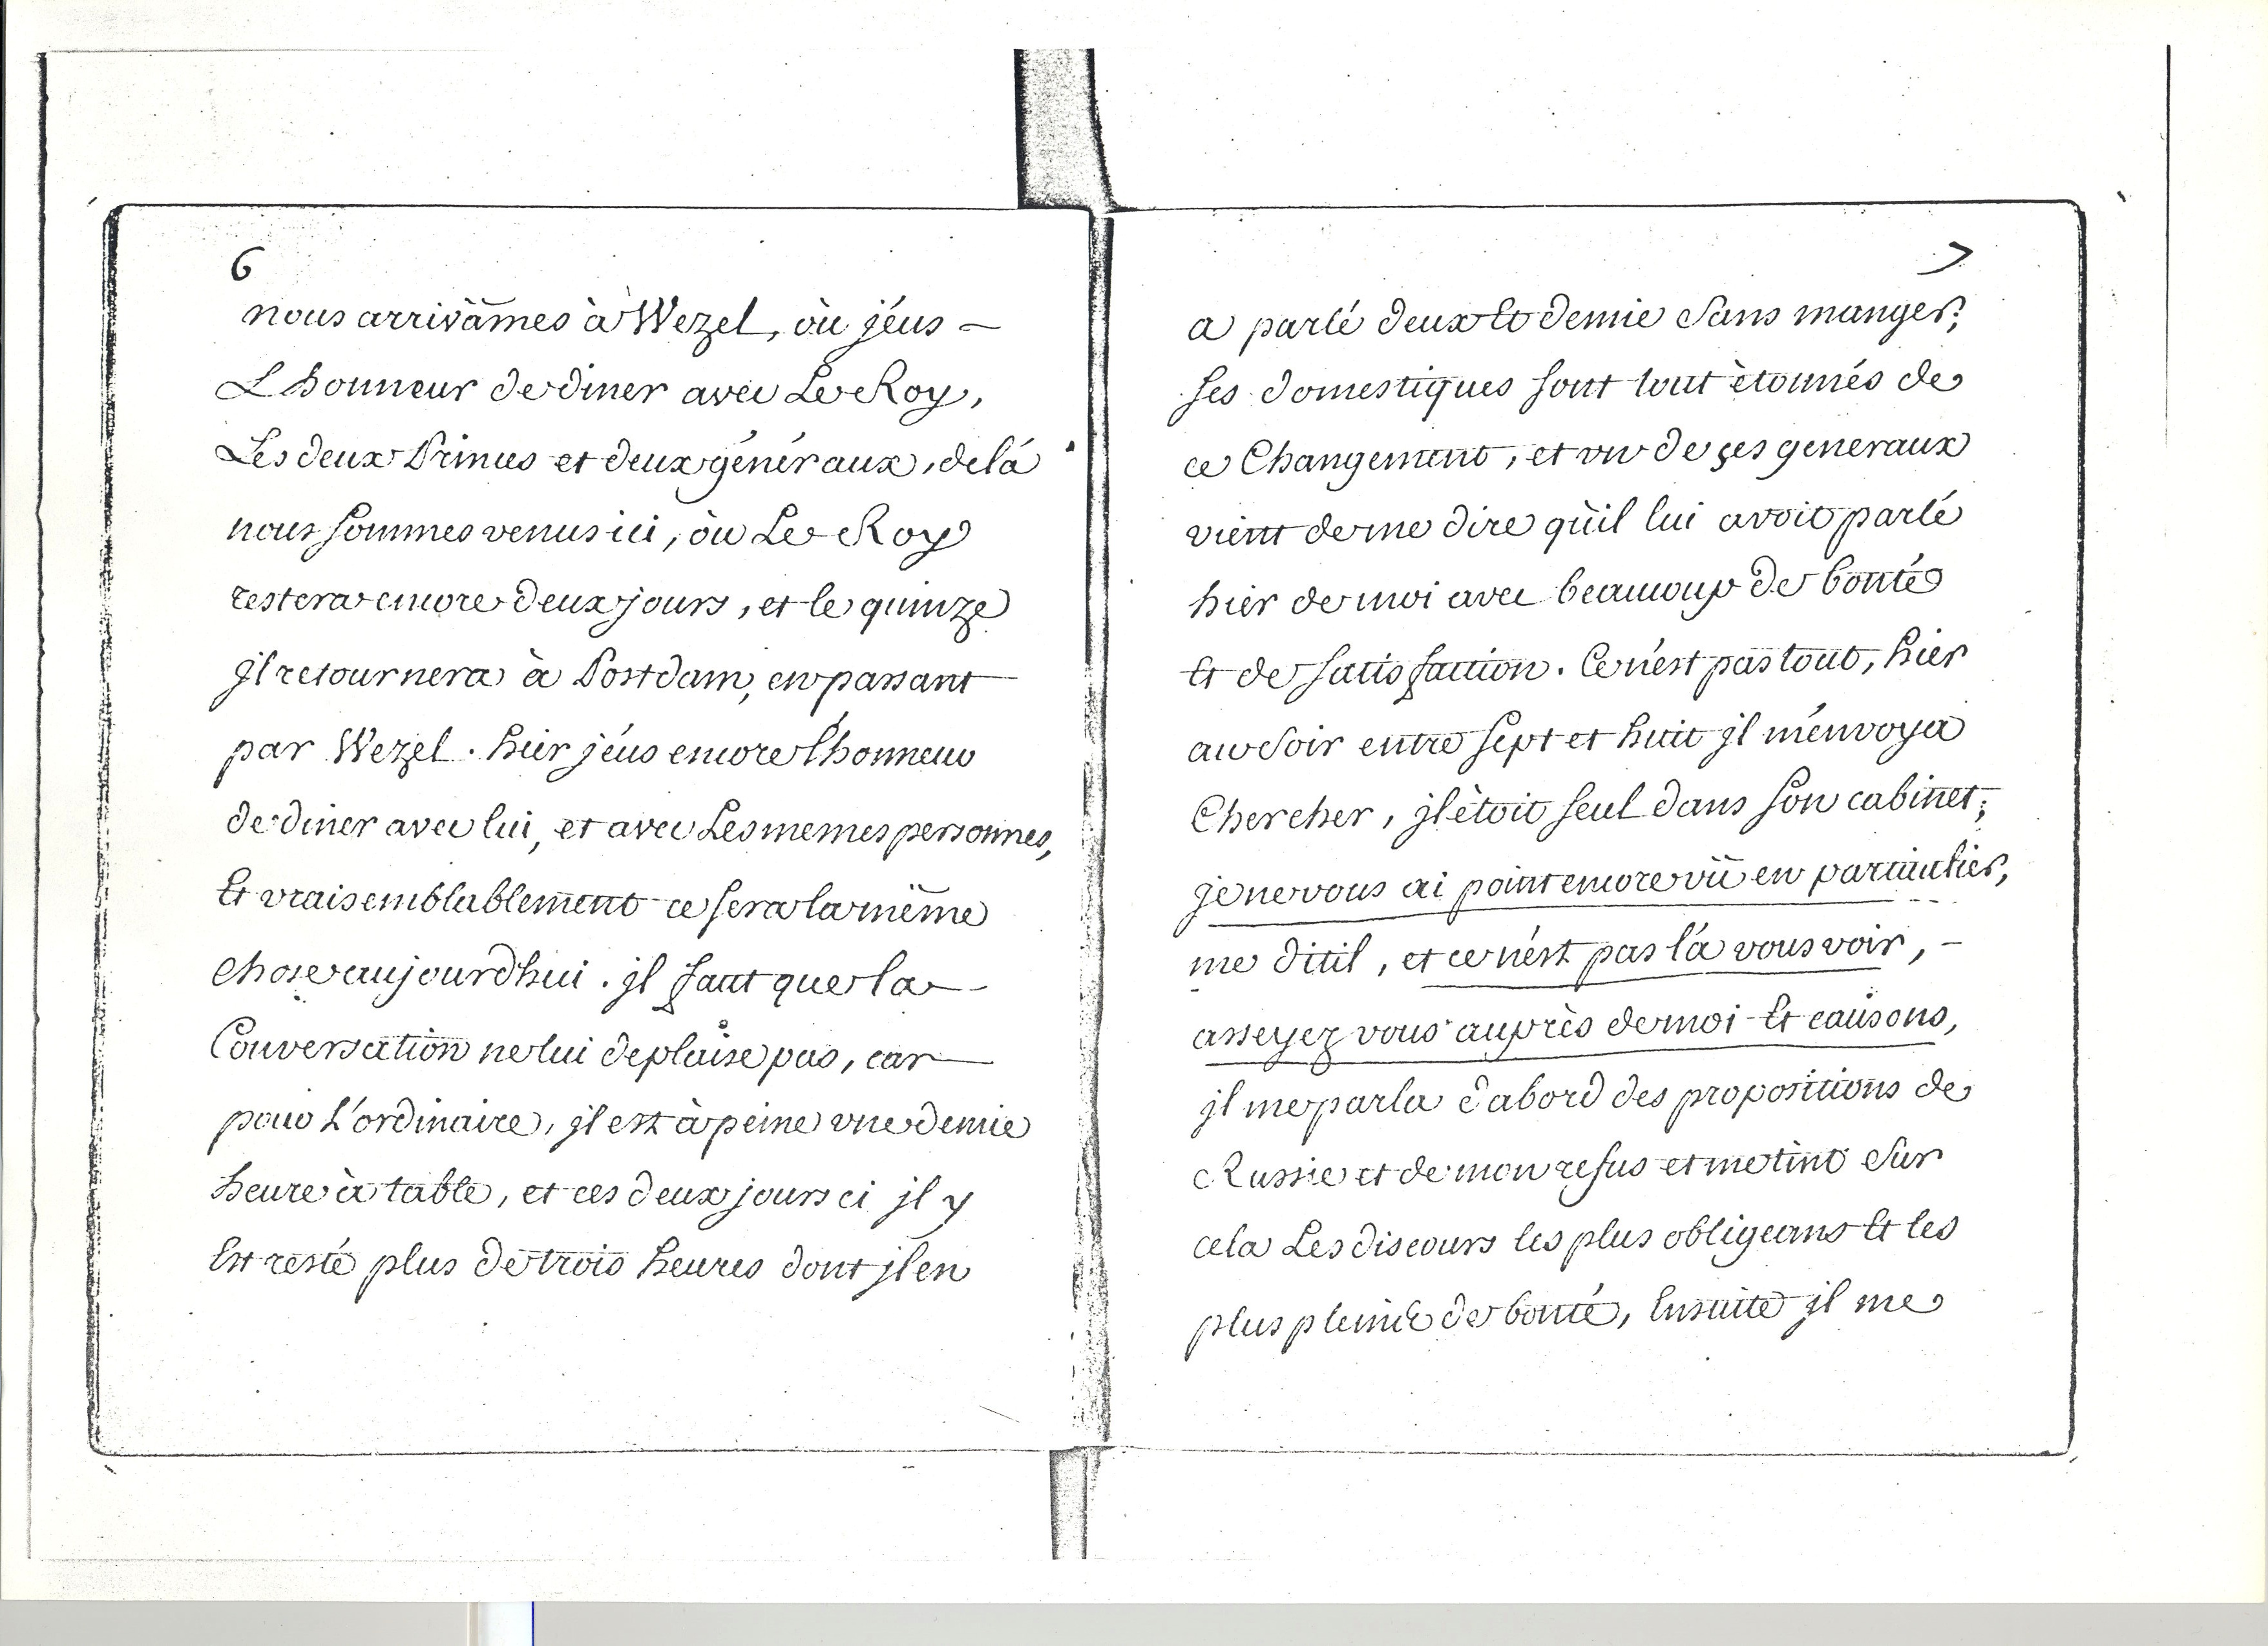 6
nous arrivâmes à Wezel, où j'éus —
L'honneur de diner avec Le Roy,
Les deux Princes et deux généraux, de là
nous sommes venus ici, où Le Roy
restera encore deux jours, et le quinze
jl retournera à Postdam, en passant
par Wezel. hier j'éus encore l'honneur
de diner avec lui, et avec Les memes personnes,
Et vraisemblablement ce sera la même
chose aujourd'hui. jl faut que la
Conversation ne lui deplaise pas, car
pour L'ordinaire, jl est à peine vne demie
heure à table, et ces deux jours ci jl y
Est resté plus de trois heures dont jl en
7
a parlé deux Et demie sans manger;
ses domestiques sont tout ètonnés de
ce Changement, et vn de ses generaux
vient de me dire qu'il lui avoit parlé
hier de moi avec beaucoup de bonté
Et de satisfaction. Ce n'est pas tout, hier
au soir entre sept et huit jl m'envoya
Chercher, jl ètoit seul dans son cabinet;
je ne vous ai point encore vû en particulier,
me dit il, et ce n'est pas là vous voir, —
asseyez vous auprès de moi Et causons,
jl me parla d'abord des propositions de
Russie et de mon refus et me tint sur
cela Les discours les plus obligeans Et les
plus pleins de bonté, Ensuite jl me